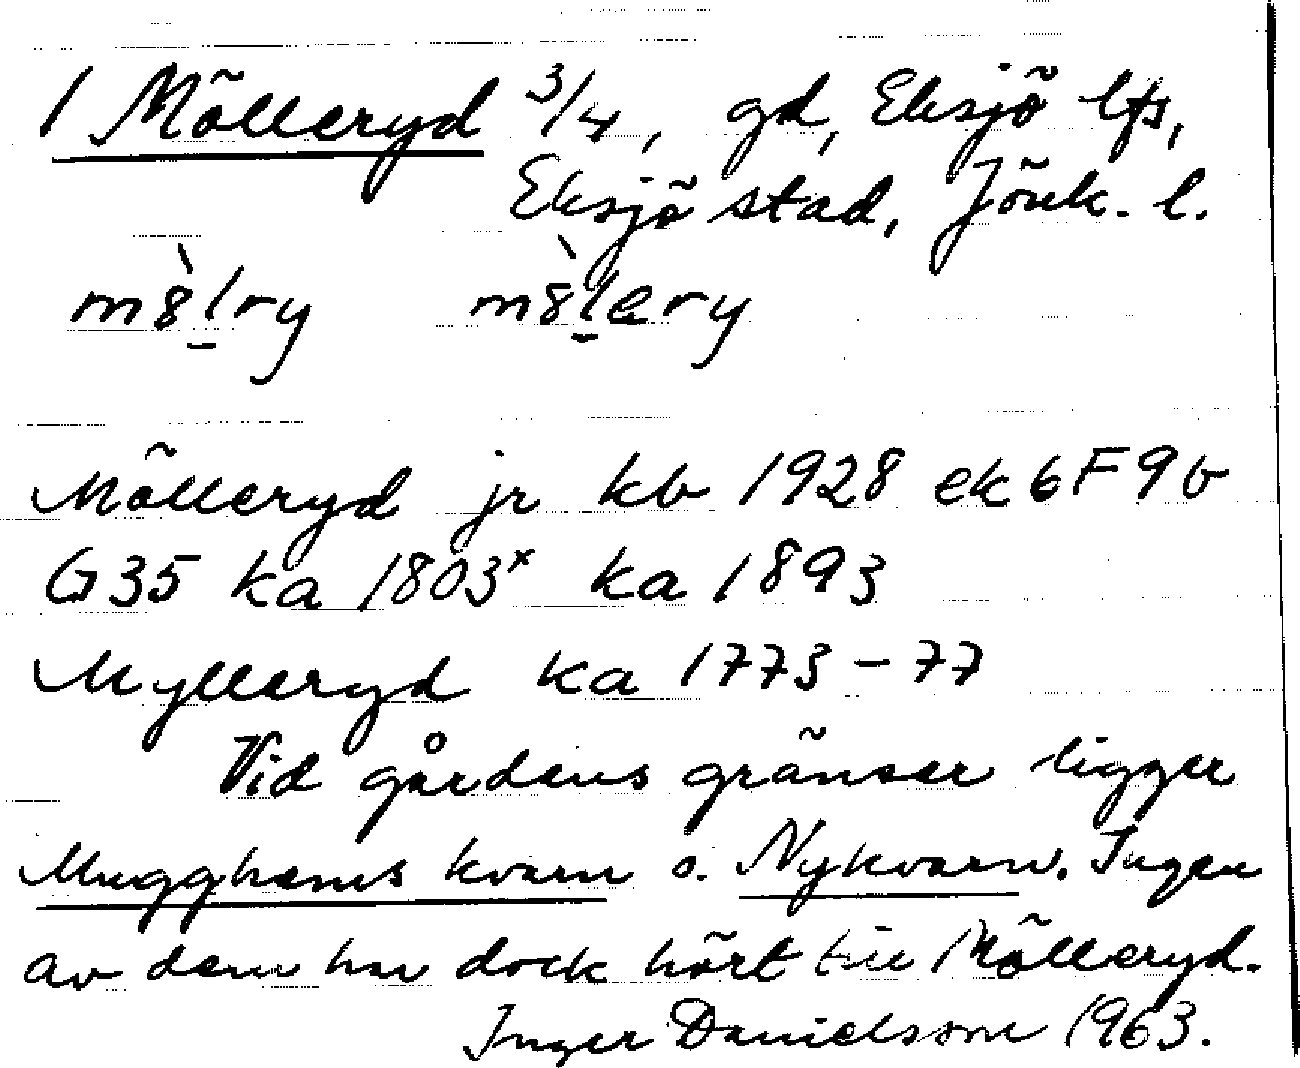 1 Mölleryd 3/4, gd, Eksjö lfs,
Eksjö stad, Jönk. l.
m8̀l̠ry m8̀l̠ery
Mölleryd jr kb 1928 ek 6F 9b
G35 ka 1803x ka 1893
Mylleryd ka 1773-77
Vid gårdens gränser ligger
Mugghems kvarn o. Nykvarn. Ingen
av dem har dock hört till Mölleryd.
Inger Danielsson 1963.